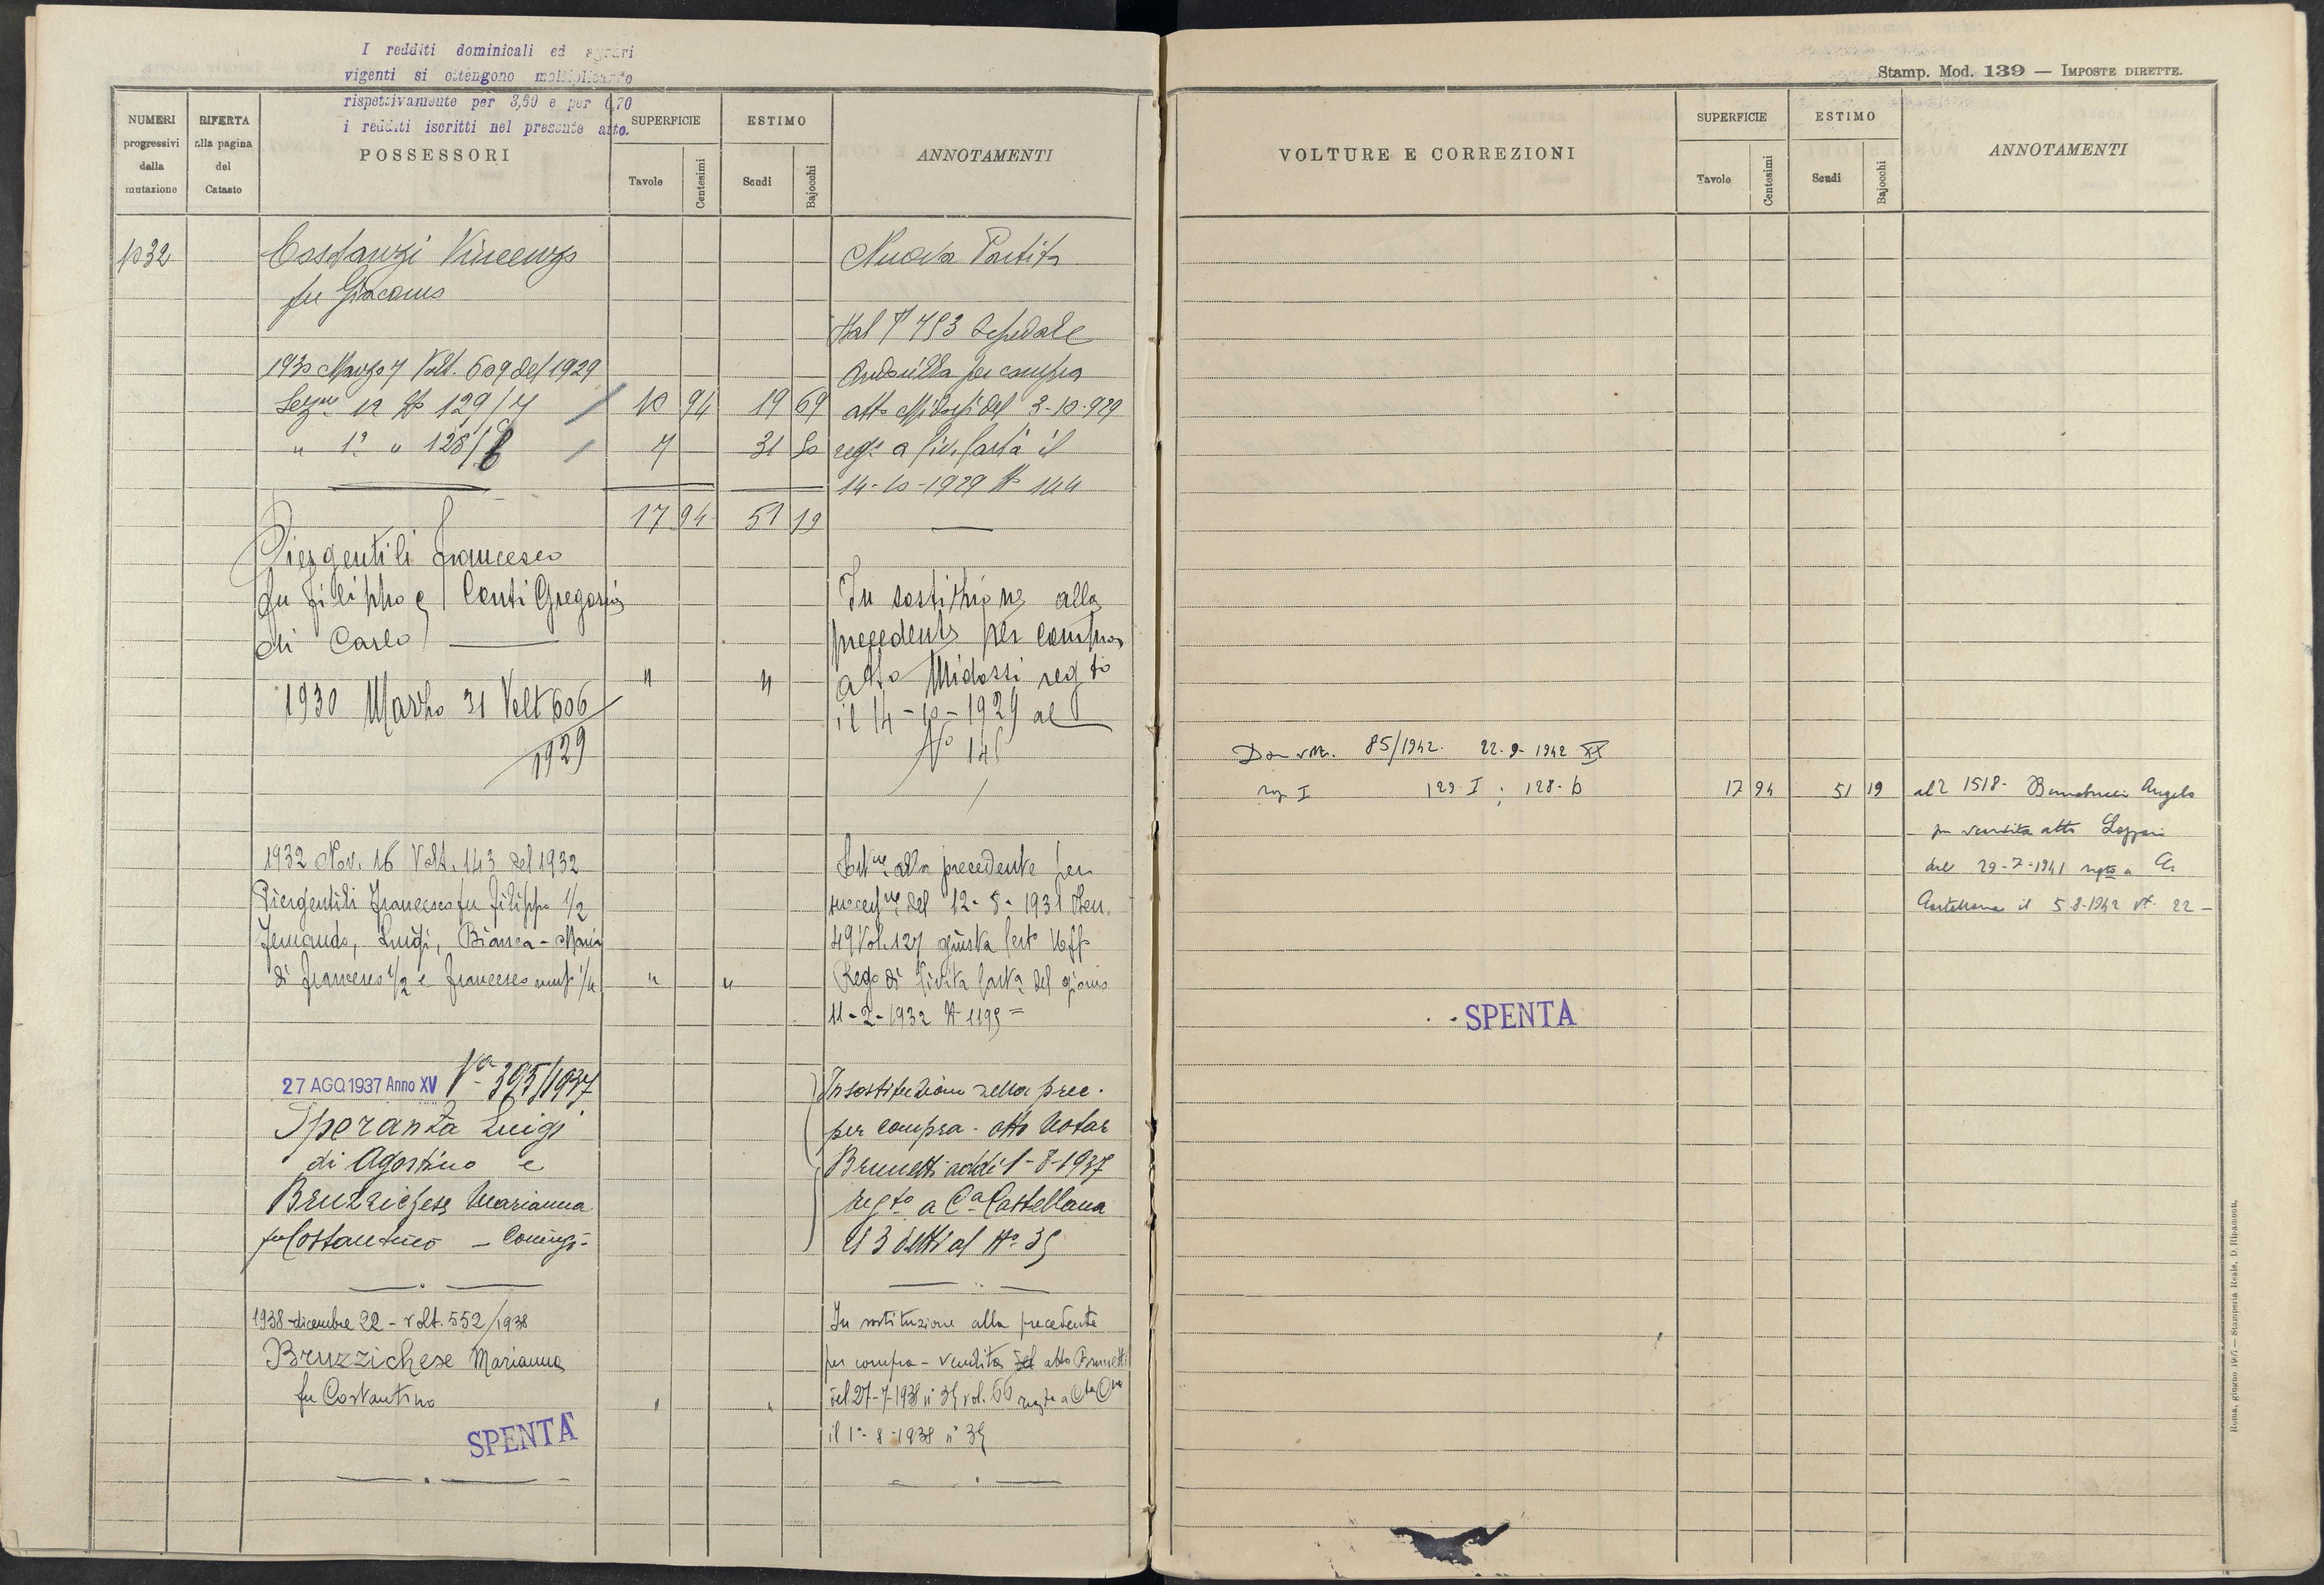 I redditi dominicali ed agrari
vigenti si ottengono moltiplicando
rispettivamente per 3,60 e per 0,70
i redditi iscritti nel presente atto.
NUMERI progressivi della mutazione
RIFERTA alla pagina del Catasto
POSSESSORI
SUPERFICIE
Tavole
Centesimi
ESTIMO
Scudi
Bajocchi
ANNOTAMENTI
1032 Costanzi Vincenzo
fu Giacomo
1930 Marzo 7 Volt. 609 del 1929
Sezne 1a No 129/ 10 94 19 69
" 1a " 128/ 7 31 50
17 94 51 19
Nuova Partita
Dal 793 Ospedale
per compra
atto Midossi del 3-10-929
regto a Civ. Casta il
14-10-1929 No 144
Piergentili Francesco
fu Filippo e Conti Gregoria
di Carlo
1930 Marzo 31 Volt 606
1929
" "
In sostituzione alla
precedente per compra
atto Midossi regto
il 14-10-1929 al
No 145
1932 Nov. 16 Volt. 143 del 1932
Piergentili Francesco fu Filippo 1/2
Fernando, Luigi, Bianca-Maria
di Francesco 1/2 e Francesco usuf 1/4
" "
alla precedente per
del 12-5-1931 Den.
49 Vol. 127 giusta Cert. Uff
Rego di Civita Casta del giorno
11-2-1932 No 1195=
27 AGO 1937 Anno XV Va 395/1937
Speranza Luigi
di Agostino e
Bruzzichese Marianna
fu Costantino - Coniugi-
In sostituzione della prec.
per compra - atto Notar
Brunetti addì 1-8-1937
regto a Ca Castellana
il 3 detti al No 35
1938-dicembre 22 - volt. 552/1938
Bruzzichese Marianna
fu Costantino
" "
In sostituzione alla precedente
per compra-vendita del atto Brunetti
del 27-7-1938 n° 35 vol. 60 regto a Cta Cna
il 1°-8-1938 n° 35
SPENTA
Stamp. Mod. 139 — IMPOSTE DIRETTE.
VOLTURE E CORREZIONI
SUPERFICIE
Tavole
Centesimi
ESTIMO
Scudi
Bajocchi
ANNOTAMENTI
85/1942. 22-9-1942 XX
I 129-I; 128-b 17 94 51 19 1518- Angelo
vendita atto
del 29-7-1941 regto a
Castellana il 5-8-1942 N° 22-
SPENTA
Roma, giugno 1927 — Stamperia Reale, D. Ripamonti.